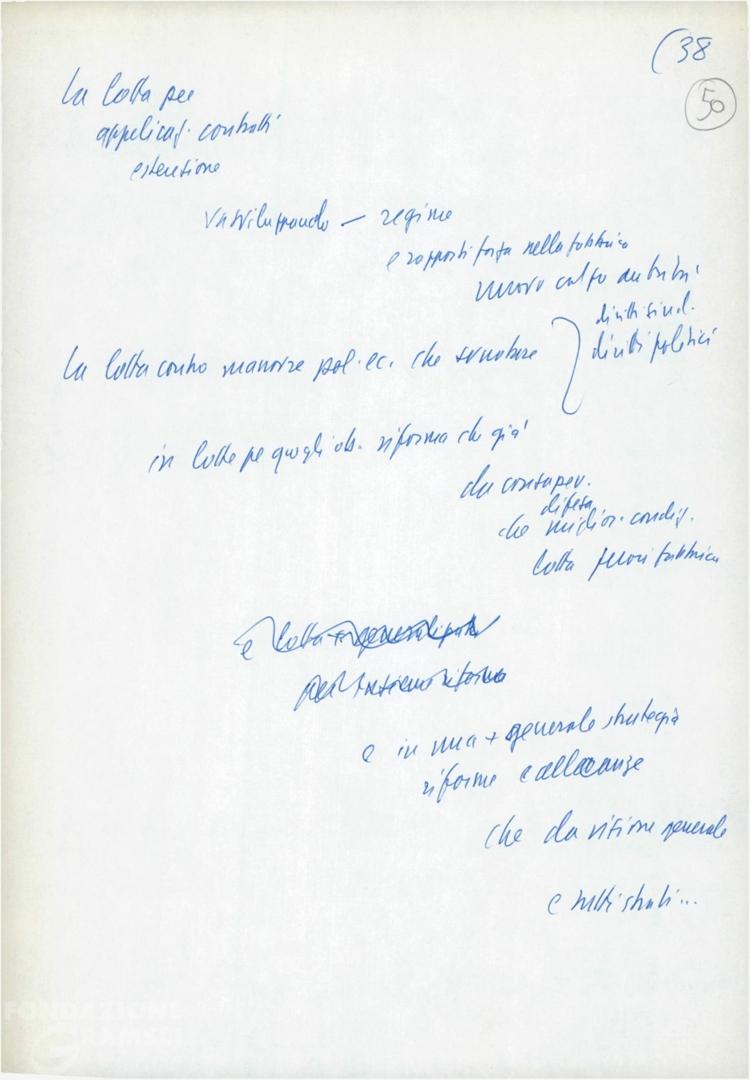 (38
50
La lotta per
applicaz. contratti
estensione
va sviluppando — regime
e rapporti forza nella fabbrica
nuovo
diritti sind.
diritti politici
La lotta contro manovre pol. ec. che
in lotte per quegli ob. riforma che già
da consapev.
difesa
che miglior. condiz.
lotta fuori fabbrica
e lotta + generalizzata
per
e in una + generale strategia
riforme e alleanze
che da visione generale
e tutti strati...
FONDAZIONE
GRAMSCI